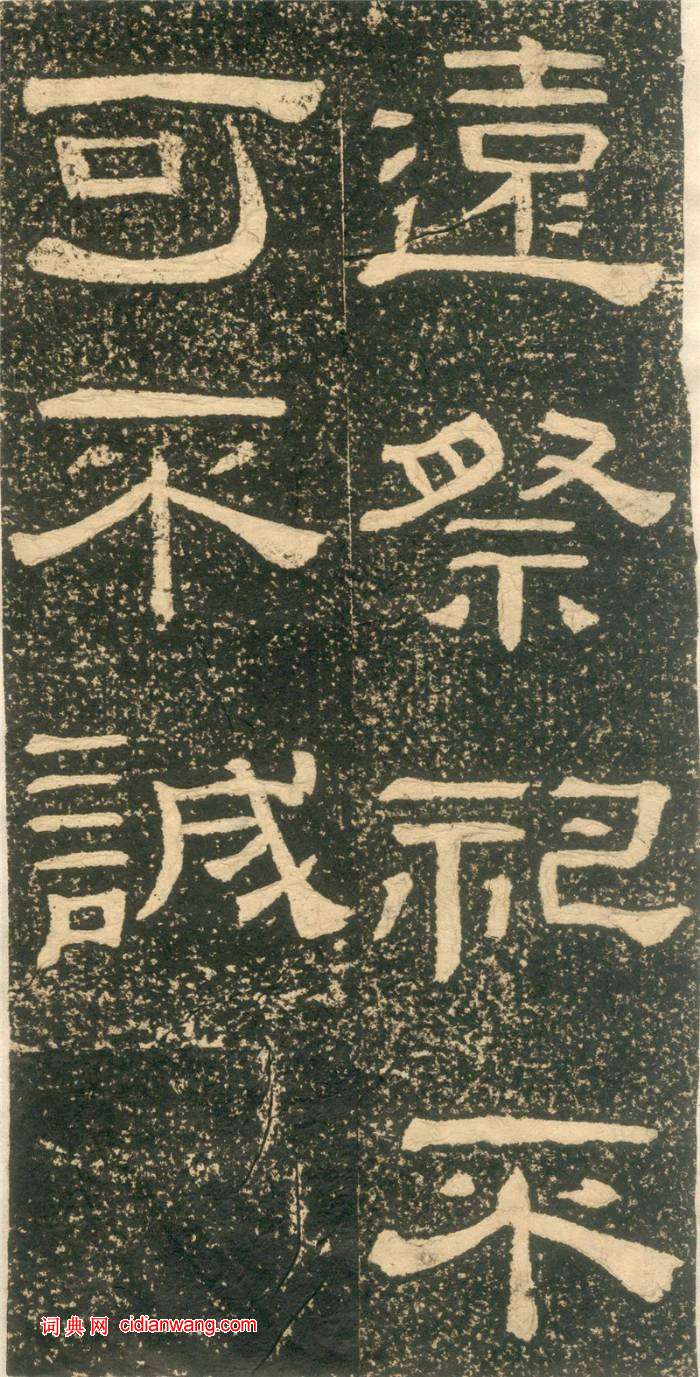 遠祭祀不
可不誠
词典网 cidianwang.com